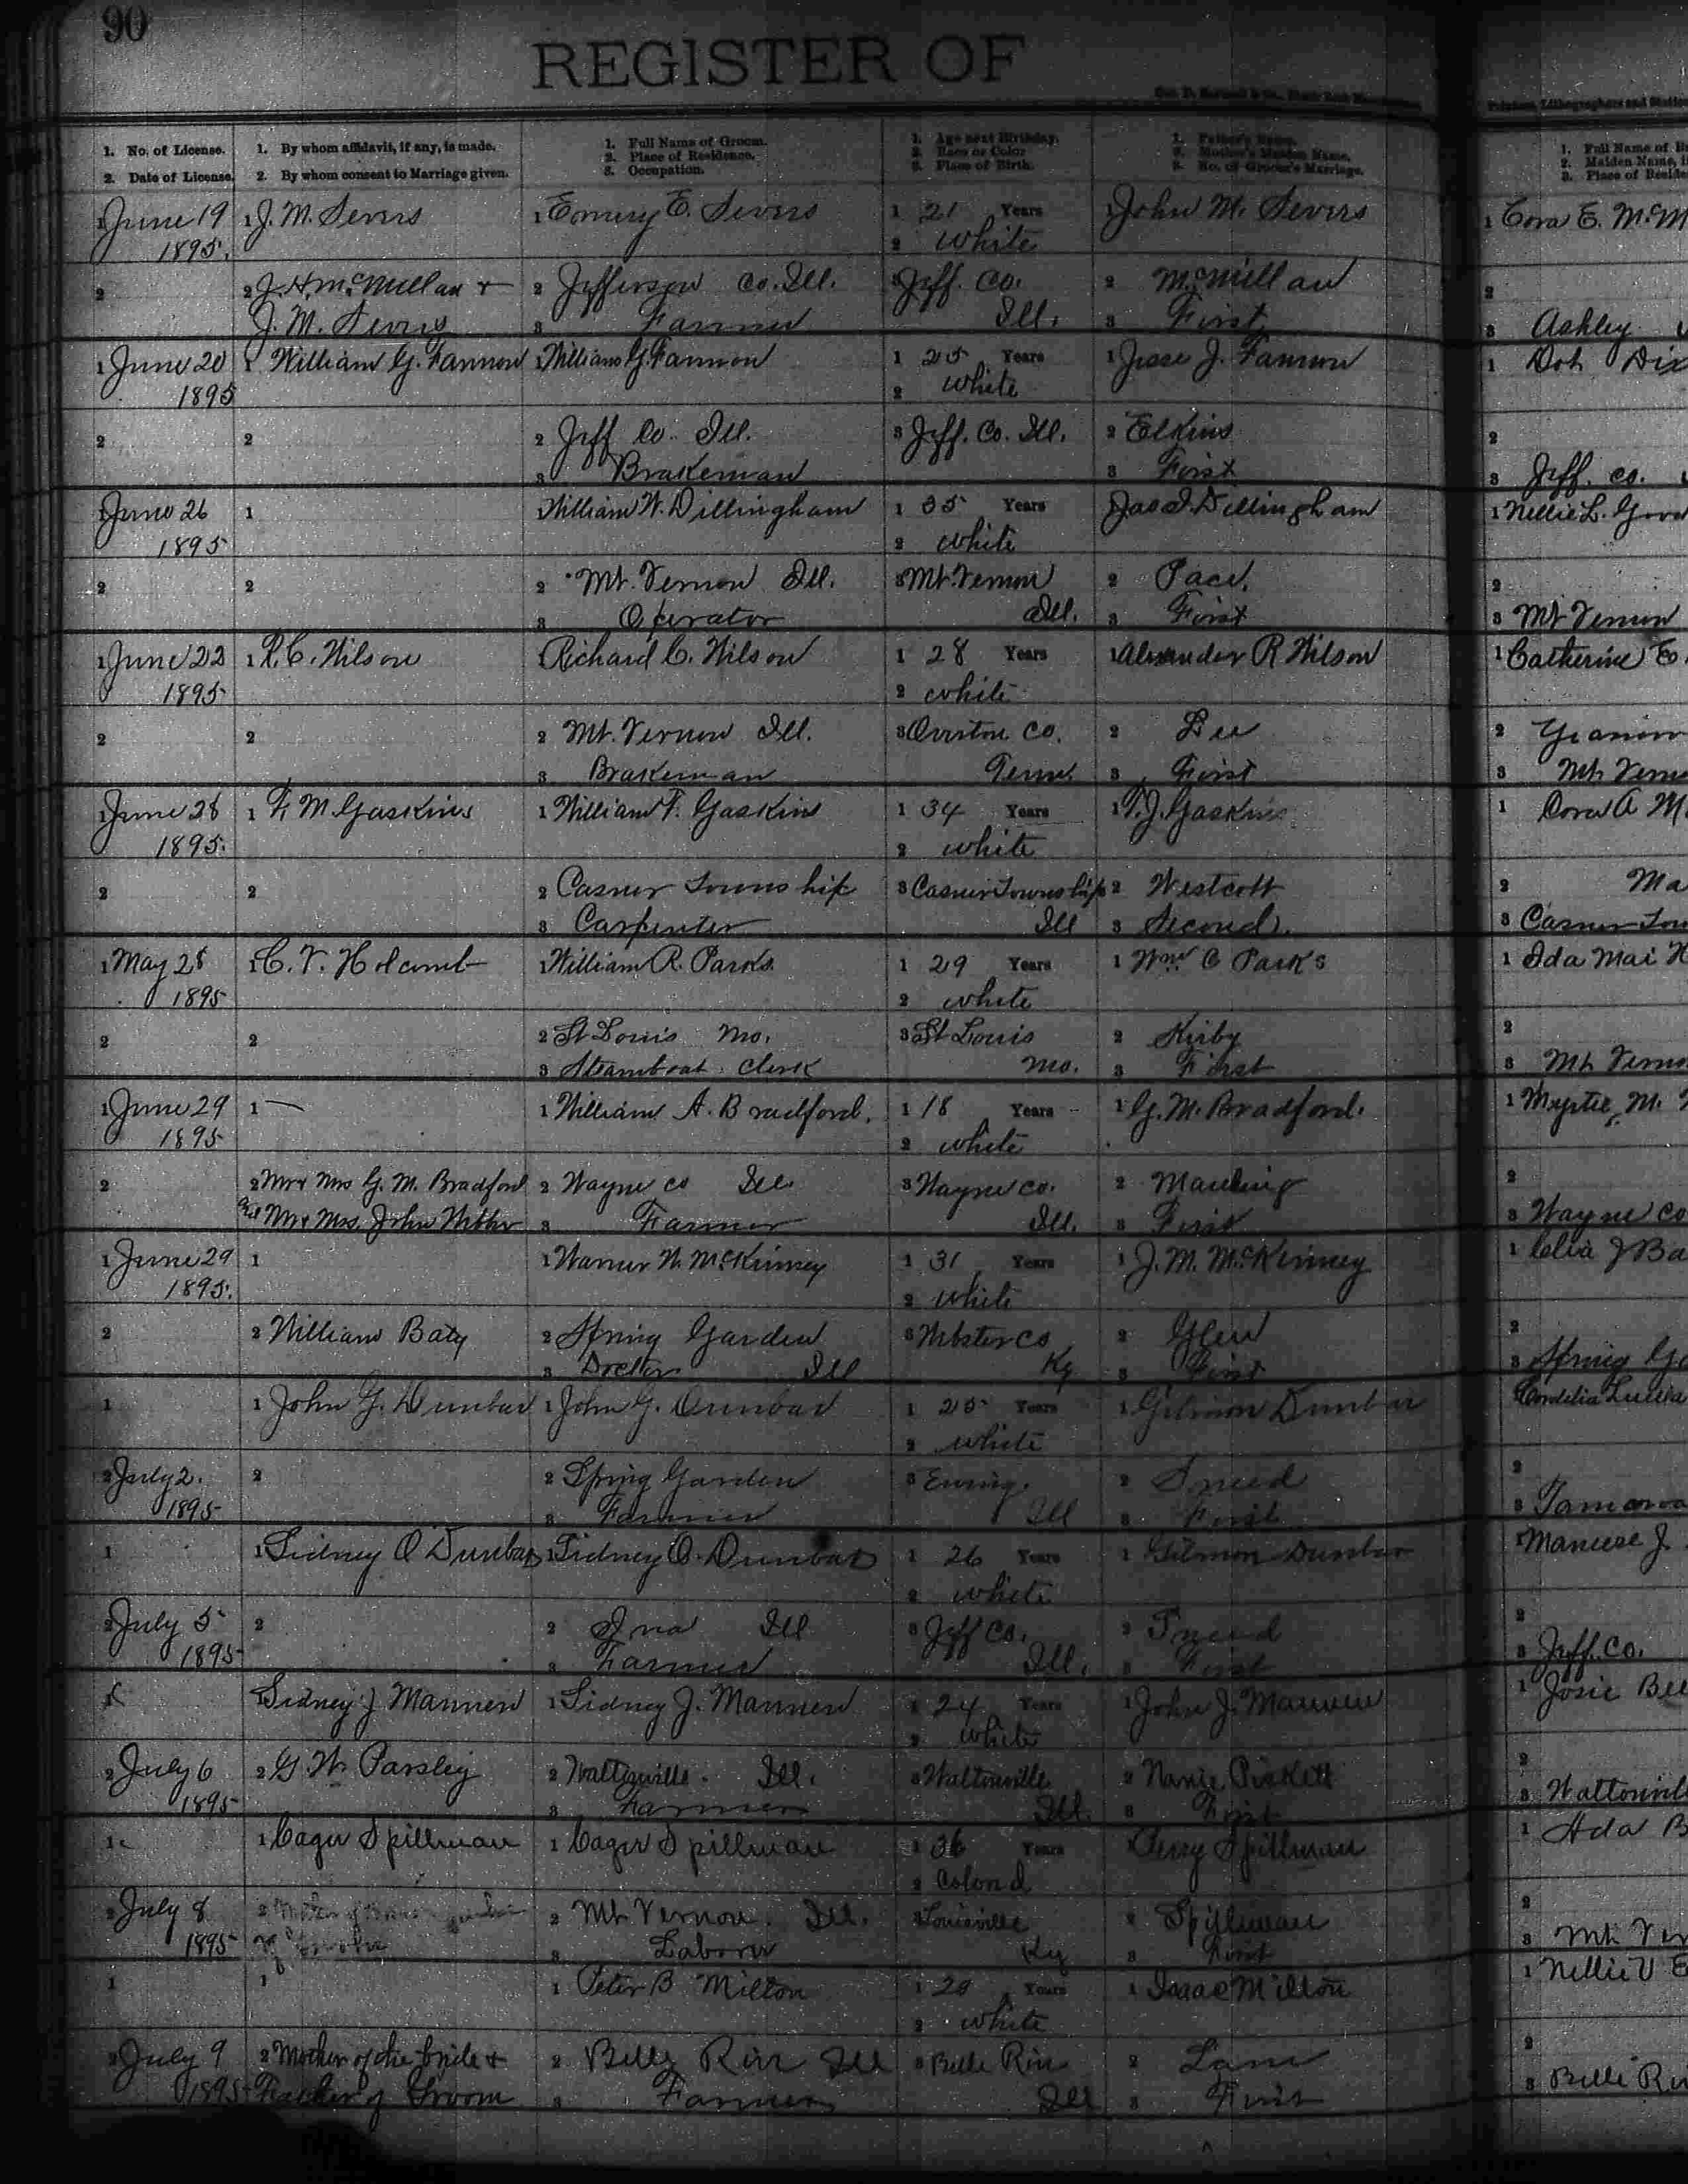 90
REGISTER OF
1. No. of License.
2. Date of License.
1. By whom affidavit, if any, is made.
2. By whom consent to Marriage given.
1. Full Name of Groom.
2. Place of Residence.
3. Occupation.
1. Age next Birthday.
2. Race or Color
3. Place of Birth.
1. Father's Name.
2. Mother's Maiden Name.
3. No. of Groom's Marriage.
1. Full Name of
2. Maiden Name,
3. Place of
1 June 19 1 J. M. Severs 1 Emery E. Severs 1 21 Years 1 John M. Severs 1 Cora E. McM
1895. 2 white
2 2 J. H. McMillan + 2 Jefferson Co. Ill. 3 Jeff. Co. 2 McMillan 2
J. M. Severs 3 Farmer Ill. 3 First 3 Ashley
1 June 20 1 William G. Fannon 1 William G. Fannon 1 25 Years 1 Jesse J. Fannon 1 Dot Dix
1895 2 white
2 2 2 Jeff Co. Ill. 3 Jeff. Co. Ill. 2 Elkins 2
3 Brakeman 3 First 3 Jeff. co.
1 June 26 1 1 William W. Dillingham 1 35 Years Jas I. Dillingham 1 Nellie L.
1895 2 white
2 2 2 Mt. Vernon Ill. 3 Mt. Vernon 2 Pace. 2
3 Operator Ill. 3 First 3 Mt Vernon
1 June 22 1 R. C. Wilson 1 Richard C. Wilson 1 28 Years 1 Alexander R Wilson 1 Catherine E.
1895 2 white
2 2 2 Mt. Vernon Ill. 3 Overton Co. 2 Lee 2
3 Brakeman Tenn. 3 First 3 Mt. Vern
1 June 28 1 F. M. Gaskins 1 William F. Gaskins 1 34 Years 1 T. J. Gaskins 1 Cora A M
1895. 2 white
2 2 2 Casner Township 3 Casner Township 2 Westcott 2 Ma
3 Carpenter Ill 3 Second. 3 Casner Tow
1 May 28 1 C. V. Holcomb 1 William R. Parks. 1 29 Years 1 Wm C Parks 1 Ida Mai H
1895 2 white
2 2 2 St Louis Mo. 3 St Louis 2 Kirby 2
3 Steamboat Clerk Mo. 3 First 3 Mt Verno
1 June 29 1 — 1 William A. Bradford. 1 18 Years 1 G. M. Bradford. 1 Myrtie M.
1895 2 white
2 2 Mr & Mrs G. M. Bradford 2 Wayne co Ill. 3 Wayne co. 2 Maulding 2
and Mr & Mrs. John 3 Farmer Ill. 3 First 3 Wayne Co
1 June 29 1 1 Warner W. McKinney 1 31 Years 1 J. M. McKinney 1 Celia J Ba
1895. 2 white
2 2 William Baty 2 Spring Garden 3 Webster co 2 Glen 2
3 Doctor Ill Ky 3 First 3 Spring Ga
1 1 John G. Dunbar 1 John G. Dunbar 1 25 Years 1 Gilmon Dunbar Cordelia
2 white
2 July 2. 2 2 Spring Garden 3 Ewing. 2 Sneed 2
1895 3 Farmer Ill 3 First 3 Tamaroa
1 1 Sidney O Dunbar 1 Sidney O. Dunbar 1 26 Years 1 Gilmon Dunbar 1 J.
2 white
2 July 5 2 2 Ina Ill 3 Jeff Co. 2 Sneed 2
1895 3 Farmer Ill. 3 First 3 Jeff. Co.
1 1 Sidney J Mannen 1 Sidney J. Mannen 1 24 Years 1 John J. Mannen 1 Josie Bel
2 white
2 July 6 2 G. W. Parsley 2 Waltonville. Ill. 3 Waltonville 2 Nanie Pickett 2
1895 3 Farmer Ill. 3 First 3 Waltonvill
1 1 Cager Spillman 1 Cager Spillman 1 36 Years 1 Perry Spillman 1 Ada B
2 Colored
2 July 8 2 Mother of 2 Mt. Vernon. Ill. 3 Louisville 2 Spillman 2
1895 3 Laborer Ky 3 First 3 Mt. Ver
1 1 1 Peter B Milton 1 29 Years 1 Isaac Milton 1 Nellie V E
2 white
2 July 9 2 Mother of the bride + 2 Belle Rive Ill 3 Belle Rive 2 Lane 2
1895 Father of Groom 3 Farmer Ill 3 First 3 Belle Ri